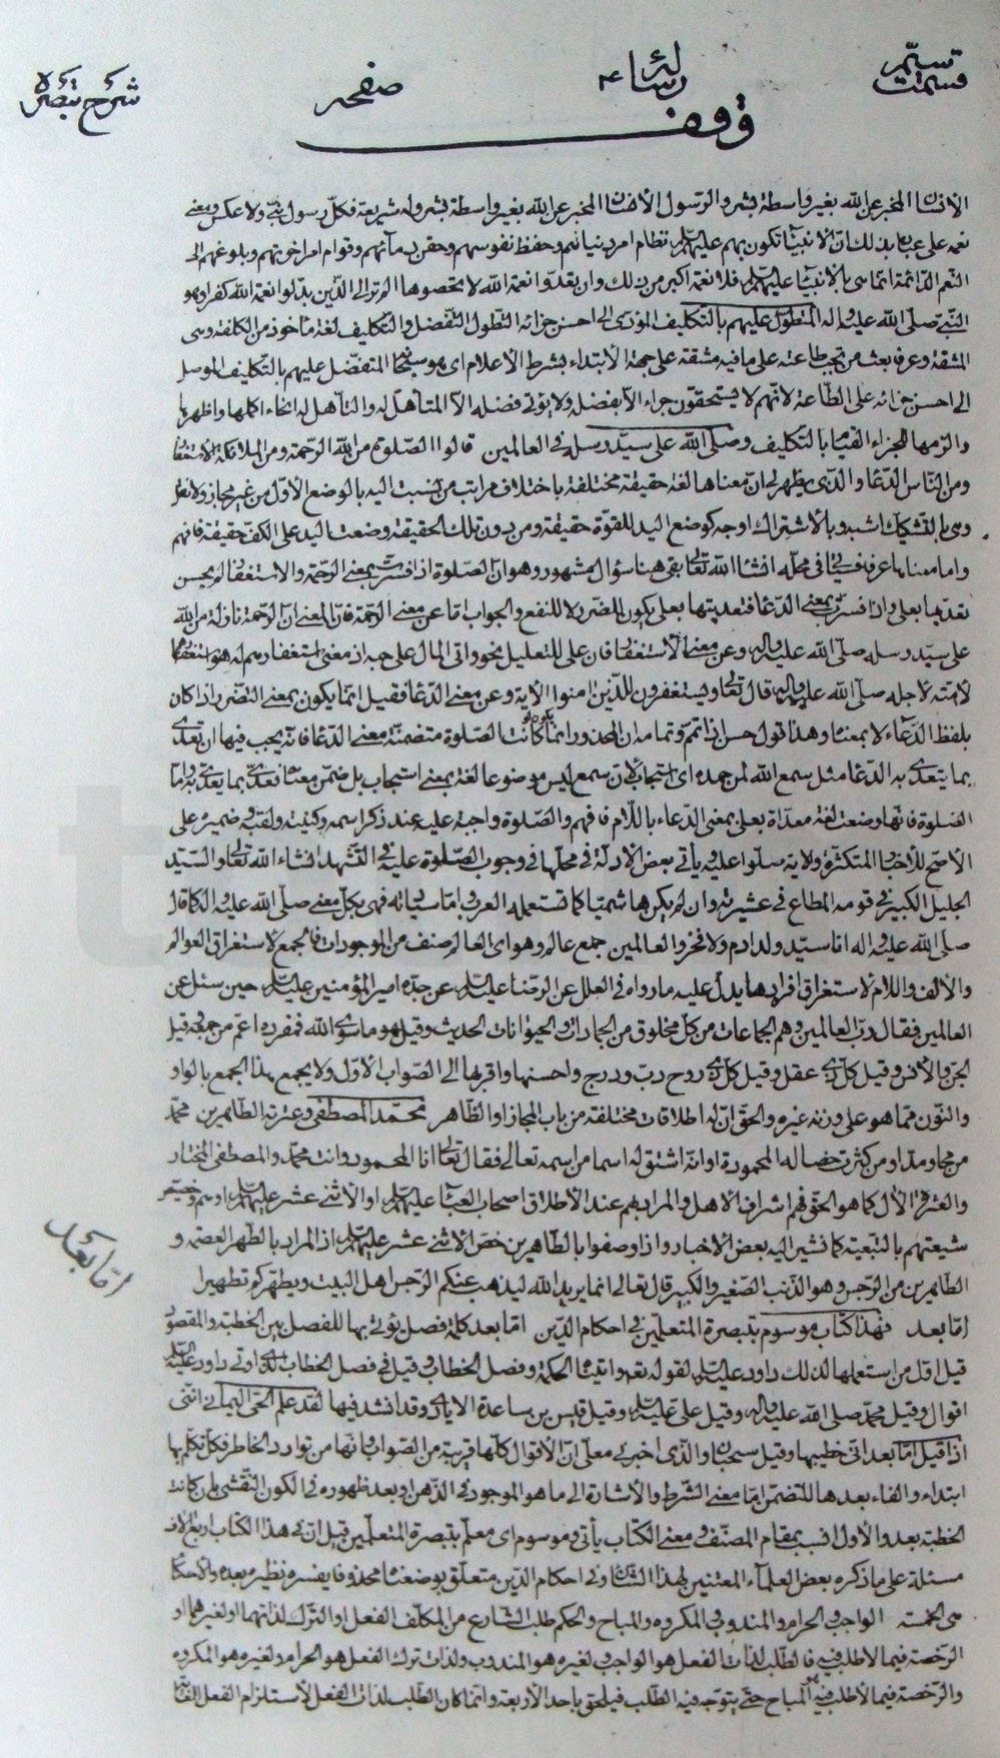 قسمت سیّم رسائل صفحه شرح تبصره
وقف
الانسان المخبر عن الله بغير واسطة بشر والرسول الانسان المخبر عن الله بغير واسطة بشر وله شريعة فكلّ رسول نبىّ ولا عكس ومعنى
نعمه على عباده بذلك انّ الانبيآء تكون بهم عليهم السّلم نظام امر دنياهم وحفظ نفوسهم وحقن دمآئهم وقوام امر اخرتهم وبلوغهم الى
النّعم الدّائمة انّما هى بالانبيآء عليهم السّلم فلا نعمة اكبر من ذلك وان تعدّوا نعمة الله لا تحصوها الم تر الى الّذين بدّلوا نعمة الله كفرا وهو
النّبى صلّى الله عليه واله المتطوّل عليهم بالتّكليف المؤدّى الى احسن جزائه التّطول التّفضل والتّكليف لغة ماخوذ من الكلفة وهى
المشقة وعرفا بعث من تجب طاعته على ما فيه مشقة على جهة الابتداء بشرط الاعلام اى هو سبحانه المتفضّل عليهم بالتّكليف الموصل
الى احسن جزائه على الطّاعة لانّهم لا يستحقّون جزاء الا بفضله ولا يؤتى فضله الّا المتاهّل له والتّاهل له انحاء اكملها واظهرها
والزمها للجزاء القيام بالتّكليف وصلّى الله على سيّد رسله فى العالمين قالوا الصّلوة من الله الرّحمة ومن الملائكة الاستغفار
ومن النّاس الدّعاء والّذى يظهر لى انّ معناها لغة حقيقة مختلفة باختلاف مراتب من نسبت اليه بالوضع الاوّل من غير مجاز ولا نقل
وهى بالتّشكيك اشبه وبالاشتراك اوجه كوضع اليد للقوّة حقيقة ومن دون تلك الحقيقة وضعت اليد على الكفّ حقيقة فافهم
وامّا معناها عرفا فيجئ فى محلّه انشاء الله تعالى بقى هنا سؤال مشهور وهو انّ الصّلوة اذا فسّرت بمعنى الرّحمة والاستغفار لم يحسن
تعدّيها بعلى واذا فسّرت بمعنى الدّعاء فتعديتها بعلى يكون للضّرر لا للنفع والجواب امّا عن معنى الرّحمة فانّ المعنى انّ الرّحمة نازلة من الله
على سيّد رسله صلّى الله عليه واله وعن معنى الاستغفار فان على للتعليل نحو واتى المال على حبّه اذ معنى استغفارهم له هو استغفارهم
لامّته لاجله صلّى الله عليه واله قال تعالى ويستغفرون للّذين امنوا الاية وعن معنى الدّعاء فقيل انّما يكون بمعنى التضرر اذا كان
بلفظ الدّعاء لا بمعناه وهذا قول حسن اذا تمّم وتمامه ان المحذور انّما يكون لو كانت الصّلوة متضمنّة معنى الدّعاء فانّه يجب فيها ان تعدّى
بما يتعدّى به الدّعاء مثل سمع الله لمن حمده اى استجاب لانّ سمع ليس موضوعا لغة بمعنى استجاب بل ضمّن معناه فعدّى بما يعدّى به وامّا
الصّلوة فانّها وضعت لغة معدّاة بعلى بمعنى الدّعاء باللّام فافهم والصّلوة واجبة عليه عند ذكر اسمه وكنيته ولقبه وضميره على
الاصحّ للاخبار المتكثّرة ولاية سلّوا عليه ويأتى بعض الادلّة فى محلّها فى وجوب الصّلوة عليه فى التّشهد انشاء الله تعالى والسّيّد
الجليل الكبير فى قومه المطاع فى عشيرته وان لم يكن هاشميّا كما تستعمله العرب وامّا سيادته فهى بكلّ معنى صلّى الله عليه واله كما قال
صلّى الله عليه واله انا سيّد ولد ادم ولا فخر والعالمين جمع عالم وهو اى العالم صنف من الموجودات فالجمع لاستغراق العوالم
والالف واللام لاستغراق افرادها يدلّ عليه ما رواه فى العلل عن الرّضا عليه السّلم عن جدّه امير المؤمنين عليه السّلم حين سئل عن
العالمين فقال ربّ العالمين وهم الجماعات من كلّ مخلوق من الجمادات والحيوانات الحديث وقيل هو ما سوى الله فمفرده اعمّ من جمعه وقيل
الجنّ والانس وقيل كلّ ذى عقل وقيل كلّ ذى روح دبّ ودرج واحسنها واقربها الى الصّواب الاوّل ولا يجمع هذا الجمع بالواو
والنّون ممّا هو على وزنه غيره والحقّ انّ له اطلاقات مختلفة من باب المجاز او الظّاهر محمّد المصطفى وعترته الطّاهرين محمّد
من كثرت خصاله المحمودة او انّه اشتقّ له اسما من اسمه تعالى فقال تعالى انا المحمود وانت محمّد والمصطفى المختار
والعترة الال كما هو الحقّ فهم اشراف الاهل والمراد بهم عند الاطلاق اصحاب العبآء عليهم السّلم او الاثنى عشر عليهم السّلم او هم وخصّيص
شيعتهم بالتّبعيّة كما تشير اليه بعض الاخبار واذا وصفوا بالطّاهرين خصّ الاثنى عشر عليهم السّلم اذ المراد بالطّهر العصمة و
الطّاهرين من الرّجس وهو الذّنب الصّغير والكبير قال تعالى انما يريد الله ليذهب عنكم الرّجس اهل البيت ويطهّركم تطهيرا
امّا بعد فهذا كتاب موسوم بتبصرة المتعلّمين فى احكام الدّين امّا بعد كلمة فصل يؤتى بها للفصل بين الخطبة والمقصود
قيل اوّل من استعملها لذلك داود عليه السّلم لقوله تعالى واتيناه الحكمة وفصل الخطاب وقيل فى فصل الخطاب الّذى اوتى داود عليه السّلم
اقوال وقيل محمّد صلّى الله عليه واله وقيل علىّ عليه السّلم وقيل قيس بن ساعدة الايادى وقد انشد فيها لقد علم الحىّ اليمانى انّنى
اذا قيل امّا بعد انّى خطيبها وقيل سحبان والّذى اخبرنى معلّى انّ الاقوال كلّها قريبة من الصّواب فانّها من توارد الخاطر فكلّ تكلّم بها
ابتداء والفاء بعدها لتضمّن امّا معنى الشّرط والاشارة الى ما هو الموجود فى الذّهن او بعد ظهوره فى الكون النّقشى ان كانت
الخطبة بعد والاول انسب بمقام المصنّف ومعنى الكتاب يأتى وموسوم اى معلّم بتبصرة المتعلّمين قيل انّ فى هذا الكتاب اربعة الاف
مسئلة على ما ذكره بعض العلمآء المعتنين لهذا الشّان وفى احكام الدّين متعلّق بوضعناه محذوفا يفسره نظيره بعده والاحكام
هى الخمسة الواجب والحرام والمندوب والمكروه والمباح والحكم طلب الشّارع من المكلّف الفعل او التّرك لذاتهما او لغيرهما او
الرّخصة فيما لا طلب فيه فالطّلب لذات الفعل هو الواجب ولغيره هو المندوب ولذات ترك الفعل هو الحرام ولغيره هو المكروه
والرّخصة فيما لا طلب فيه هو المباح حتّى يتوجّه فيه الطّلب فيلحق باحد الاربعة وانّما كان الطّلب لذات الفعل لاستلزام الفعل
امّا بعد